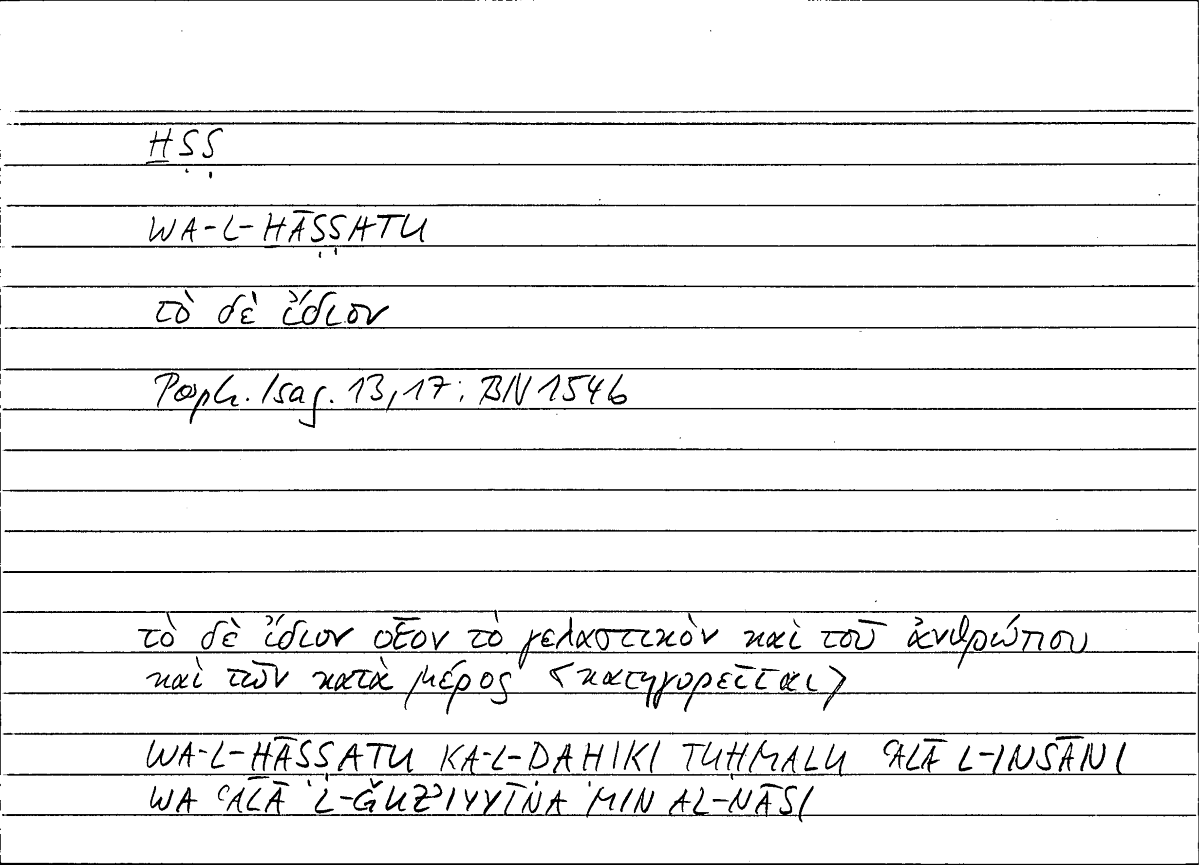 ḪṢṢ
WA-L-ḪĀṢṢATU
τὸ δὲ ἴδιον
Porph. Isag. 13,17; BN 1546
τὸ δὲ ἴδιον οἷον τὸ γελαστικὸν καὶ τοῦ ἀνθρώπου
καὶ τῶν κατὰ μέρος <κατηγορεῖται>
WA-L-ḪĀṢṢATU KA-L-ḌAḤIKI TUḤMALU ʿALĀ L-INSĀNI
WA ʿALĀ L-ǦUZʾIYYĪNA MIN AL-NĀSI